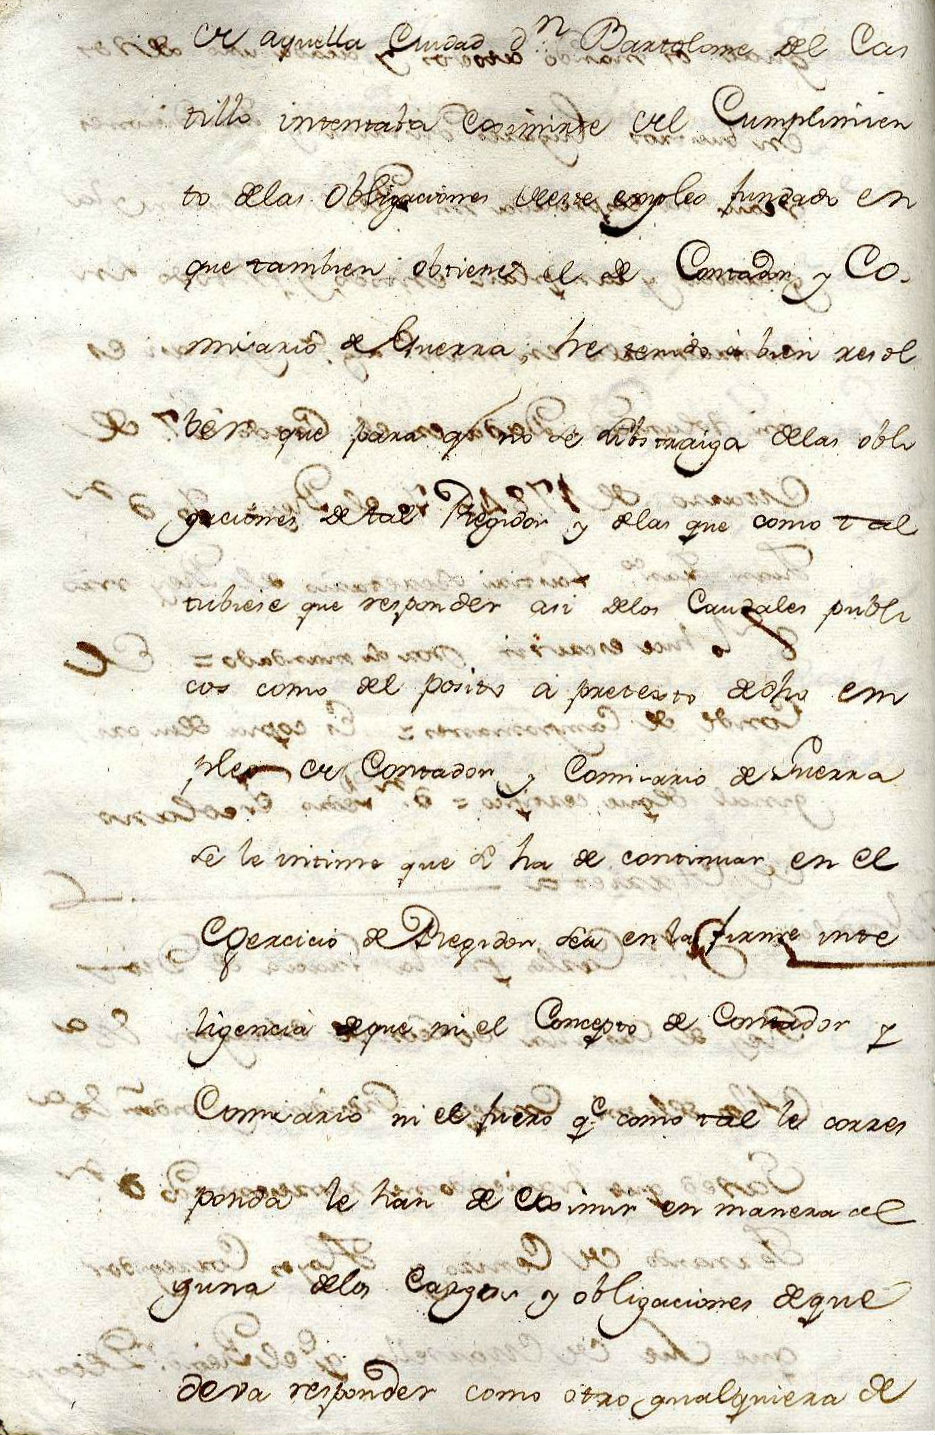 de aquella Ciudad dn. Bartolome del Cas
tillo intentaba eximirse del Cumplimien
to delas Obligaciones deese empleo fundado en
que tambien obtiene el de Contador y Co-
misario de Guerra, he tenido à bien resol
bèr que para q no se substraiga delas obli
gaciones de tal Regidor y delas que como tal
tubiese que responder asi delos Caudales publi
cos como del posito à pretexto dedho em
pleo de Contador y Comisario de Guerra
se le intime que si ha de continuar en el
Exercicio de Regidor sea en la firme inte
ligencia deque ni el Concepto de Contador y
Comisario ni el fuero qe. como tal le corres
ponda le han de eximir en manera al
guna delos Cargos y obligaciones deque
deva responder como otro qualquiera de